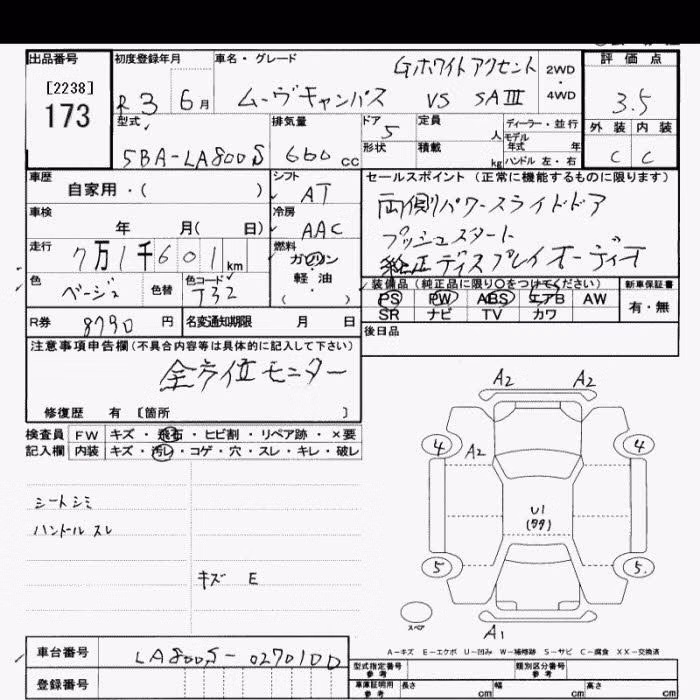 出品番号 初度登録年月 車名・グレード 評価点
[2238]
173
R 3 6月
Gホワイトアクセント
ムーヴキャンバス VS SAⅢ
2WD
4WD
3.5
型式 排気量 ドア 定員 人 ディーラー・並行
モデル年式 年
外装 内装
5BA-LA800S 660 cc 5
形状 積載 kg ハンドル 左・右
C C
車歴 シフト セールスポイント (正常に機能するものに限ります)
自家用・( ) AT
両側パワースライドドア
車検 年 月( 日) 冷房 AAC
プッシュスタート
走行 7万1千601km 燃料 ガソリン・軽油
純正ディスプレイオーディオ
色 ベージュ 色替 色コード T32
装備品 (純正品に限り○をつけてください) 新車保証書
PS PW ABS エアB AW 有・無
SR ナビ TV カワ
R券 8790円 名変通知期限 月 日
後日品
注意事項申告欄(不具合内容等は具体的に記入して下さい)
全方位モニター
修復歴 有 [箇所 ]
検査員 FW キズ・飛石・ヒビ割・リペア跡・×要
記入欄 内装 キズ・汚レ・コゲ・穴・スレ・キレ・破レ
シートシミ
ハンドルスレ
キズ E
A2 A2
4 A2 4
U1
5 5
スペア
A1
A-キズ E-エクボ U-凹み W-補修跡 S-サビ C-腐食 XX-交換済
車台番号 LA800S-0270100
登録番号
型式指定番号 参考 類別区分番号 参考
車庫証明用 参考 長さ cm 幅 cm 高さ cm